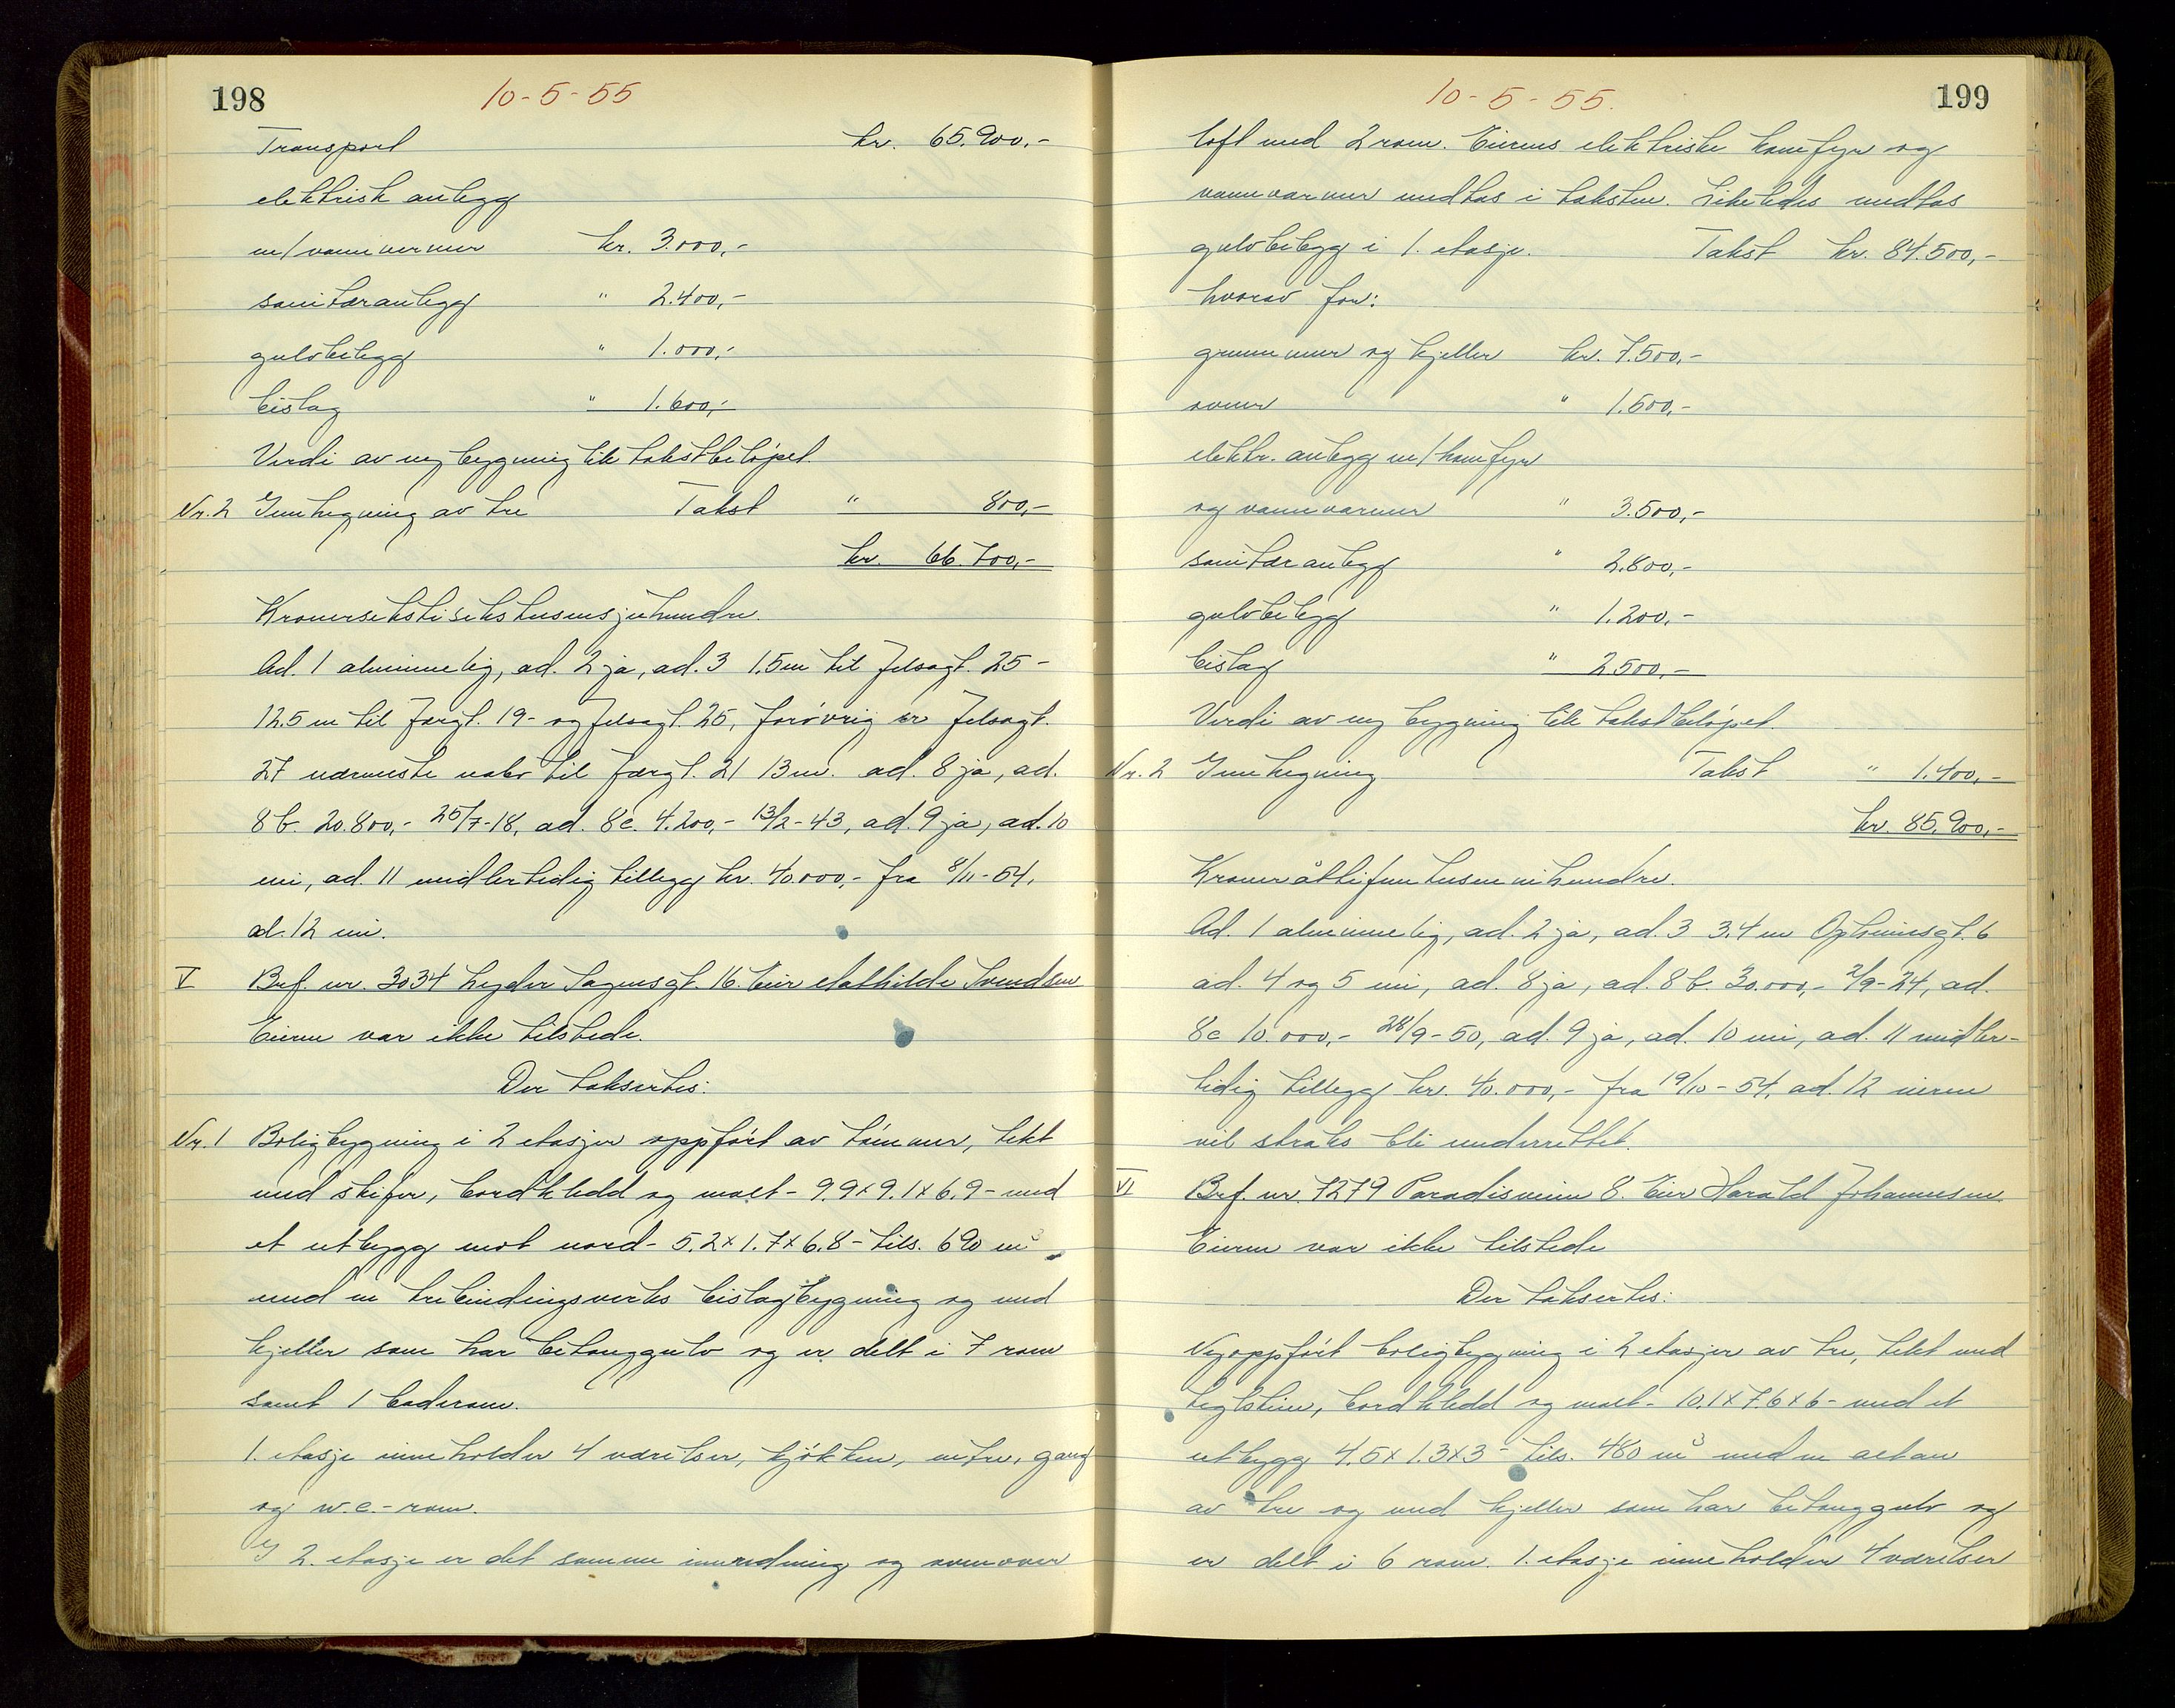 198
10-5-55
Transport kr. 65.900,-
elektrisk anlegg
m/vannvarmer kr. 3.000,-
sanitæranlegg " 2.400,-
gulvbelegg " 1.000,-
bislag " 1.600,-
Verdi av ny bygning lik takstbeløpet.
Nr. 2 Innhegning av tre Takst " 800,-
kr. 66.700,-
Kronersekstisekstusensjuhundre.
Ad. 1 alminnelig, ad. 2 ja, ad. 3 1,5 m til Jelsagt. 25 -
12.5 m til Jørgt. 19- og Jelsagt. 25, forøvrig er Jelsagt.
27 nærmeste nabo til Jørgt. 21 13 m. ad. 8 ja, ad.
8 b. 20.800,- 25/7-18, ad. 8c. 4.200,- 13/2-43, ad. 9 ja, ad. 10
nei, ad. 11 midlertidig tillegg kr. 40.000,- fra 8/11-54,
ad. 12 nei.
V Brf. nr. 3034 Lyder Sagensgt. 16. Eier Mathilde Svendsen
Eieren var ikke tilstede.
Der taksertes:
Nr. 1 Boligbygning i 2 etasjer oppført av tømmer, tekt
med skifer, bordkledd og malt - 9.9 x 9.1 x 6.9 - med
et utbygg mot nord - 5.2 x 1.7 x 6.8 - tils. 690 m³
med en trebindingsverks bislagbygning og med
kjeller som har betonggulv og er delt i 7 rom
samt 1 baderom.
1. etasje inneholder 4 værelser, kjøkken, entre, gang
og w.c.-rom.
I 2. etasje er det samme innredning og ovenover
199
10-5-55.
loft med 2 rom. Eierens elektriske komfyr og
vannvarmer medtas i taksten. Likeledes medtas
gulvbelegg i 1. etasje. Takst kr. 84.500,-
hvorav for:
grunnmur og kjeller kr. 7.500,-
ovner " 1.600,-
elektr. anlegg m/komfyr
og vannvarmer " 3.500,-
sanitæranlegg " 2.800,-
gulvbelegg " 1.200,-
bislag " 2.500,-
Verdi av ny bygning lik takstbeløpet.
Nr. 2 Innhegning Takst " 1.400,-
kr. 85.900,-
Kroneråttifemtusennihundre.
Ad. 1 alminnelig, ad. 2 ja, ad. 3 3.4 m Opheimsgt. 6
ad. 4 og 5 nei, ad. 8 ja, ad. 8 b. 30.000,- 2/9-24, ad.
8c 10.000,- 28/9-50, ad. 9 ja, ad. 10 nei, ad. 11 midler-
tidig tillegg kr. 40.000,- fra 19/10-54, ad. 12 eieren
vil straks bli underrettet.
VI Brf. nr. 7279 Paradisveien 8. Eier Harald Johannesen.
Eieren var ikke tilstede
Der taksertes:
Nyoppført boligbygning i 2 etasjer av tre, tekt med
teglstein, bordkledd og malt - 10.1 x 7.6 x 6 - med et
utbygg 4.5 x 1.3 x 3 - tils. 480 m³ med en altan
av tre og med kjeller som har betonggulv og
er delt i 6 rom. 1. etasje inneholder 4 værelser